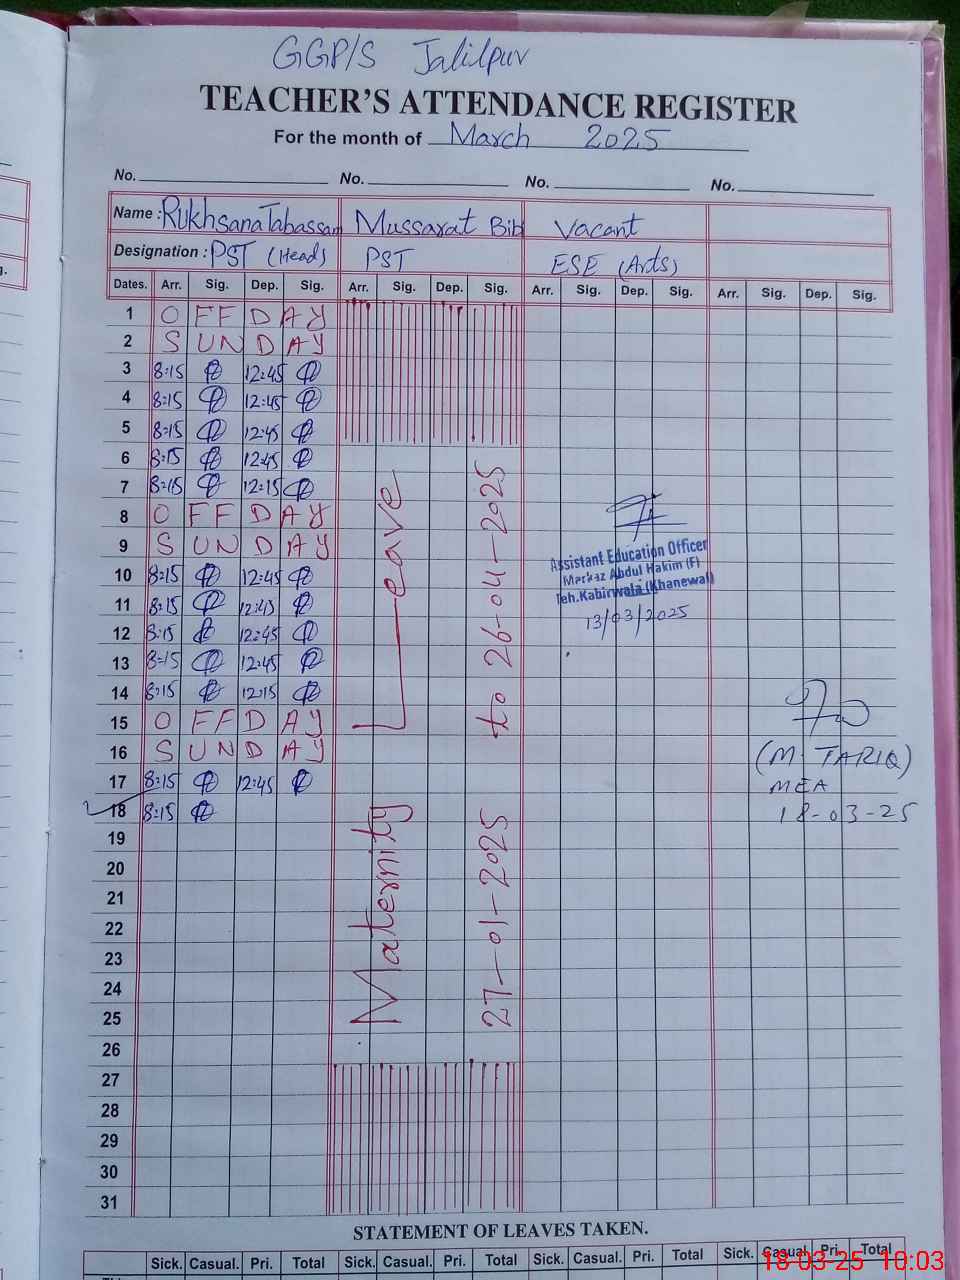 GGP/S Jalilpur
TEACHER'S ATTENDANCE REGISTER
For the month of March 2025
No. No. No. No.
Name : Rukhsana Tabassam Mussarat Bibi Vacant
Designation : PST (Head) PST ESE (Arts)
Dates. Arr. Sig. Dep. Sig. Arr. Sig. Dep. Sig. Arr. Sig. Dep. Sig. Arr. Sig. Dep. Sig.
1 OFF DAY
2 SUNDAY
3 8:15 12:45
4 8:15 12:45
5 8:15 12:45
6 8:15 12:45
7 8:15 12:15
8 OFF DAY
9 SUNDAY
10 8:15 12:45
11 8:15 12:45
12 8:15 12:45
13 8:15 12:45
14 8:15 12:15
15 OFF DAY
16 SUNDAY
17 8:15 12:45
18 8:15
19
20
21
22
23
24
25
26
27
28
29
30
31
Maternity Leave
27-01-2025 to 26-04-2025
Assistant Education Officer
Markaz Abdul Hakim (F)
Teh. Kabirwala (Khanewal)
13/03/2025
(M. TARIQ)
MEA
18-03-25
STATEMENT OF LEAVES TAKEN.
Sick. Casual. Pri. Total Sick. Casual. Pri. Total Sick. Casual. Pri. Total Sick. Casual. Pri. Total
18-03-25 10:03